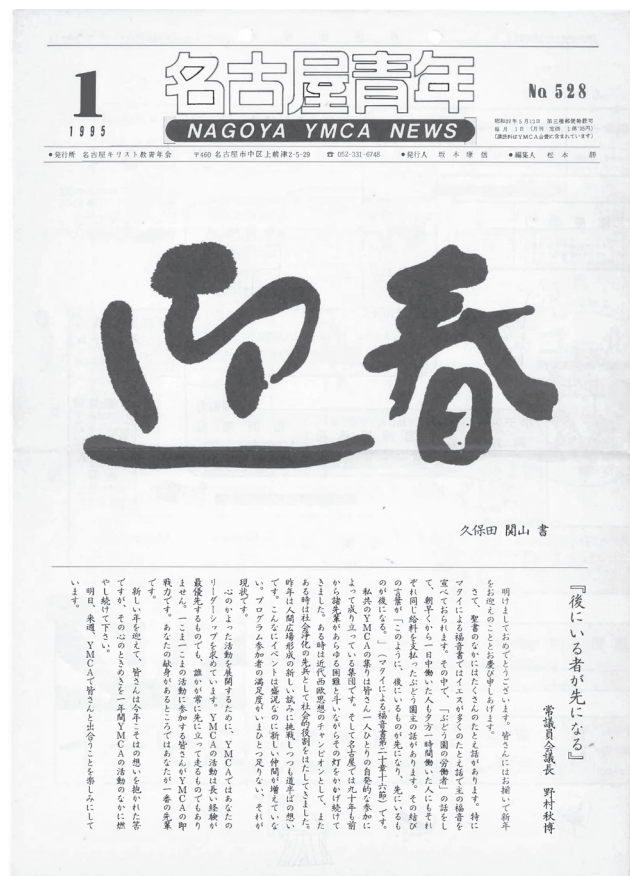 1
1995
名古屋青年
NAGOYA YMCA NEWS
No.528
昭和27年5月13日 第三種郵便物認可
毎月1日(月刊 定価 1部35円)
(購読料はYMCA会費に含まれています)
●発行所 名古屋キリスト教青年会 〒460 名古屋市中区上前津2-5-29 ☎ 052-331-6748 ●発行人 坂本康信 ●編集人 松本 勝
迎春
久保田 関山 書
『後にいる者が先になる』
常議員会議長 野村秋博
明けましておめでとうございます。皆さんにはお揃いで新年
をお迎えのこととお慶び申しあげます。
さて、聖書のなかにはたくさんのたとえ話があります。特に
マタイによる福音書ではイエスが多くのたとえ話で主の福音を
宣べておられます。その中で、「ぶどう園の労働者」の話をし
て、朝早くから一日中働いた人も夕方一時間働いた人にもそれ
ぞれ同じ給料を支払ったぶどう園主の話があります。その結び
の言葉が「このように、後にいるものが先になり、先にいるも
のが後になる。」(マタイによる福音書第二十章十六節)です。
私共のYMCAの集りは皆さん一人ひとりの自発的な参加に
よって成り立っている集団です。そして名古屋では九十年も前
から諸先輩があらゆる困難と斗いながらその灯をかかげ続けて
きました。ある時は近代西欧思想のチャンピオンとして、また
ある時は社会浄化の先兵として社会的役割をはたしてきました。
昨年は人間広場形成の新しい試みに挑戦しつつも道半ばの想い
です。こんなにイベントは盛況なのに新しい仲間が増えていな
い。プログラム参加者の満足度がいまひとつ足りない、それが
現状です。
心のかよった活動を展開するために、YMCAではあなたの
リーダーシップを求めています。YMCAの活動は長い経験が
最優先するものでも、誰かが常に先に立って走るものでもあり
ません。一こま一こまの活動に参加する皆さんがYMCAの即
戦力です。あなたの献身があるところではあなたが一番の先輩
です。
新しい年を迎えて、皆さんは今年こそはの想いを抱かれた筈
ですが、その心のときめきを一年間YMCAの活動のなかに燃
やし続けて下さい。
明日、来週、YMCAで皆さんと出会うことを楽しみにして
います。